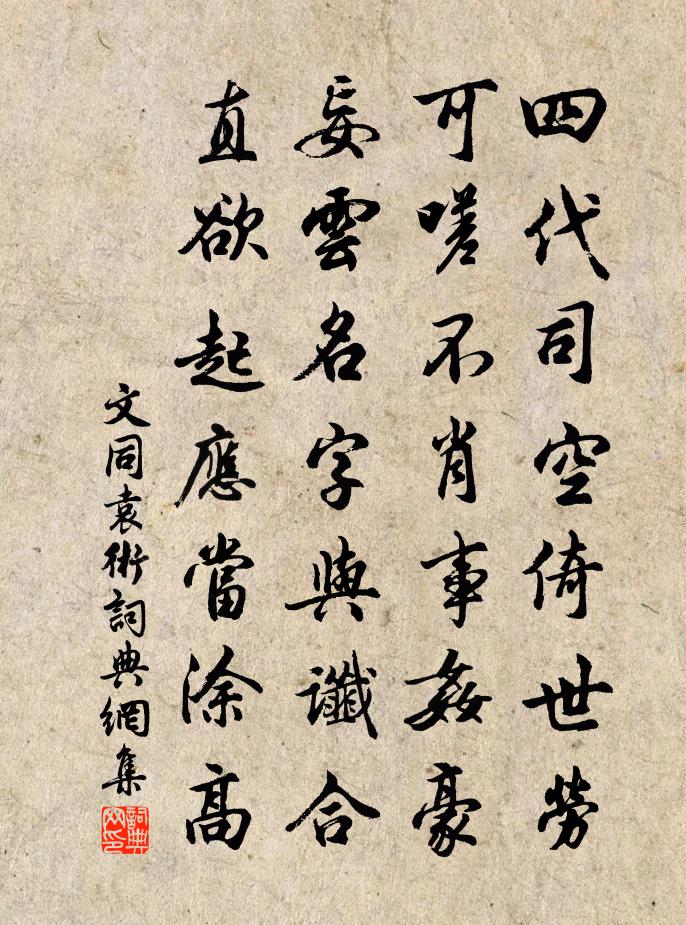 四代司空倚世勞
可嗟不肖事姦豪
妄雲名字與讖合
直欲起應當涂高
文同袁術詞典網集
詞典网印